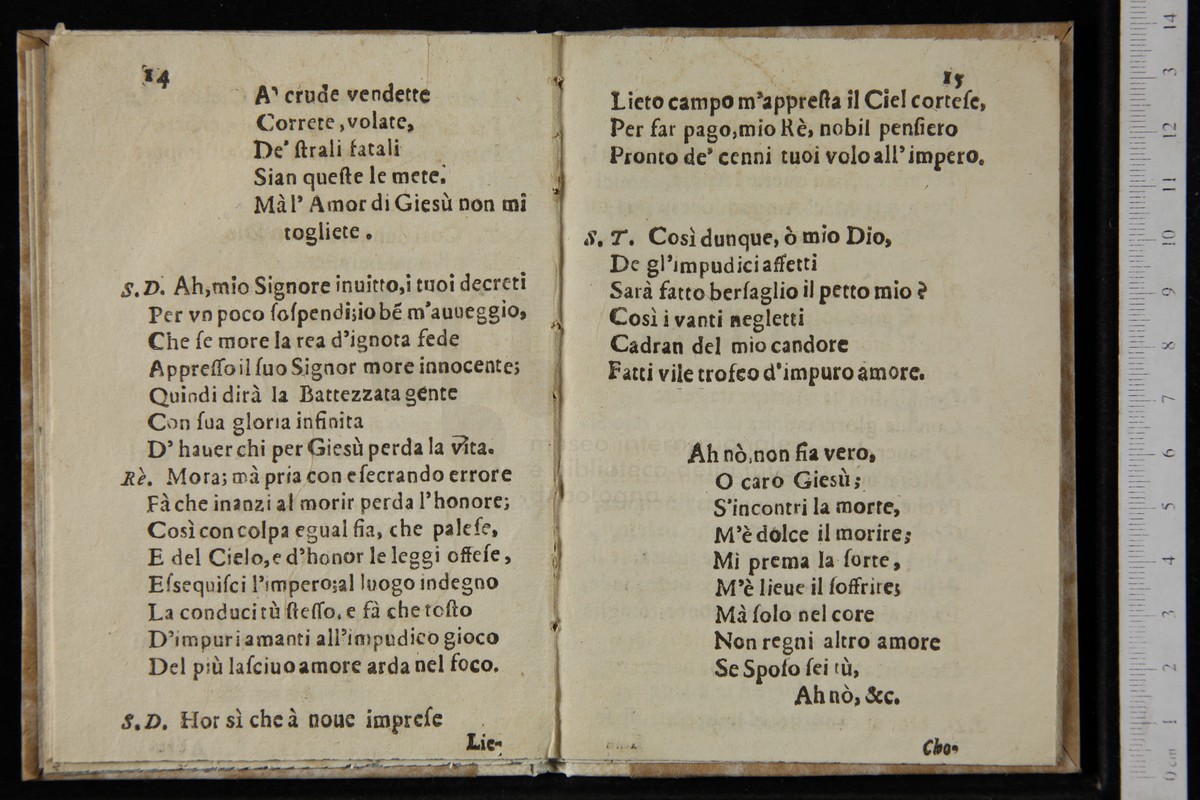 14
A' crude vendette
Correte, volate,
De' ſtrali fatali
Sian queſte le mete.
Mà l' Amor di Giesù non mi
togliete.
S. D. Ah, mio Signore inuitto, i tuoi decreti
Per vn poco ſoſpendi; io bẽ m'auueggio,
Che ſe more la rea d'ignota fede
Appreſſo il ſuo Signor more innocente;
Quindi dirà la Battezzata gente
Con ſua gloria infinita
D' hauer chi per Giesù perda la vita.
Rè. Mora; mà pria con eſecrando errore
Fà che inanzi al morir perda l'honore;
Così con colpa egual fia, che paleſe,
E del Cielo, e d'honor le leggi offeſe,
Eſsequiſci l'impero; al luogo indegno
La conduci tù ſteſſo, e fà che toſto
D'impuri amanti all'impudico gioco
Del più laſciuo amore arda nel foco.
S. D. Hor sì che à noue impreſe
Lie-
15
Lieto campo m'appreſta il Ciel corteſe,
Per far pago, mio Rè, nobil penſiero
Pronto de' cenni tuoi volo all' impero.
S. T. Così dunque, ò mio Dio,
De gl'impudici affetti
Sarà fatto berſaglio il petto mio?
Così i vanti negletti
Cadran del mio candore
Fatti vile trofeo d'impuro amore.
Ah nò, non fia vero,
O caro Giesù;
S'incontri la morte,
M'è dolce il morire;
Mi prema la ſorte,
M'è lieue il ſoffrire;
Mà ſolo nel core
Non regni altro amore
Se Spoſo ſei tù,
Ah nò, &c.
Cho-